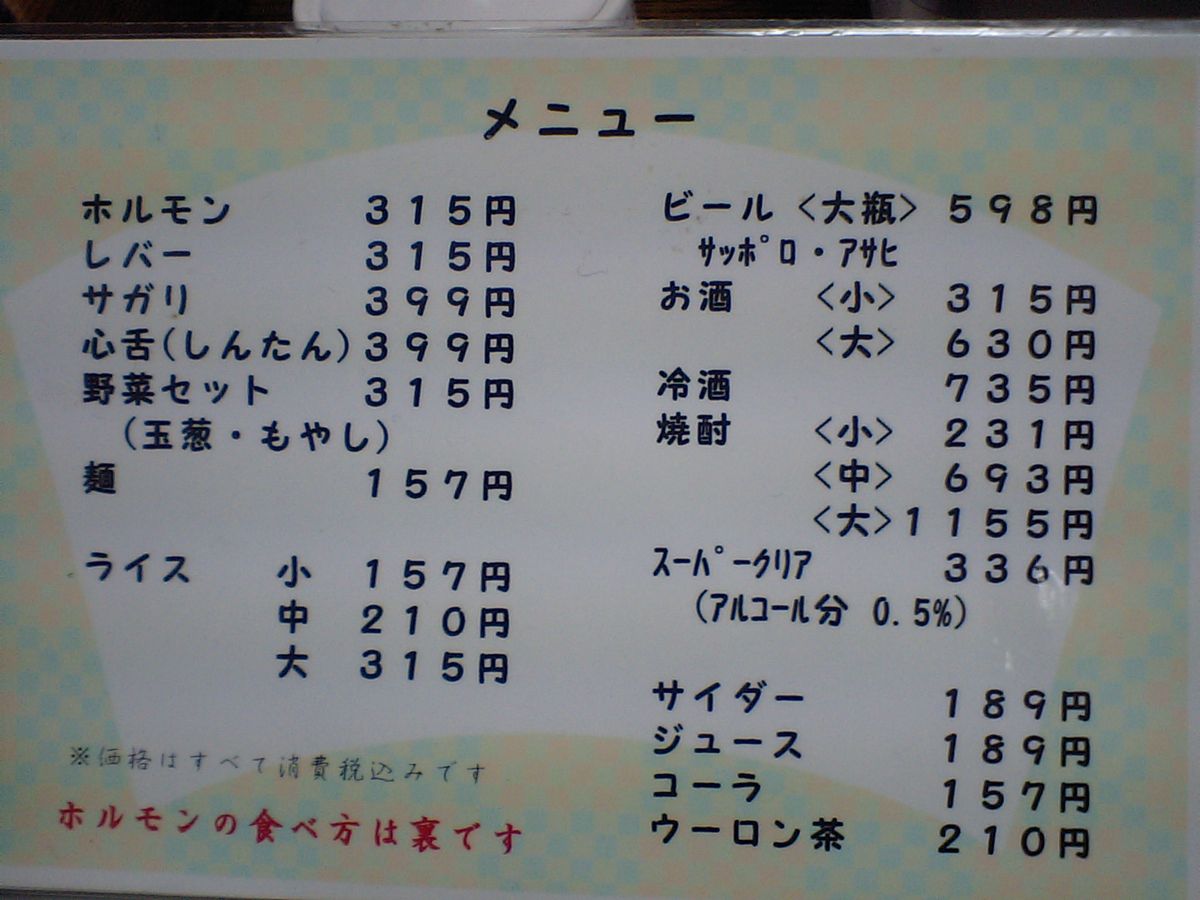 メニュー
ホルモン ３１５円
レバー ３１５円
サガリ ３９９円
心舌(しんたん) ３９９円
野菜セット ３１５円
（玉葱・もやし）
麺 １５７円
ライス 小 １５７円
中 ２１０円
大 ３１５円
※価格はすべて消費税込みです
ホルモンの食べ方は裏です
ビール〈大瓶〉 ５９８円
ｻｯﾎﾟﾛ・ｱｻﾋ
お酒 〈小〉 ３１５円
〈大〉 ６３０円
冷酒 ７３５円
焼酎 〈小〉 ２３１円
〈中〉 ６９３円
〈大〉１１５５円
ｽｰﾊﾟｰｸﾘｱ ３３６円
（ｱﾙｺｰﾙ分 0.5%）
サイダー １８９円
ジュース １８９円
コーラ １５７円
ウーロン茶 ２１０円